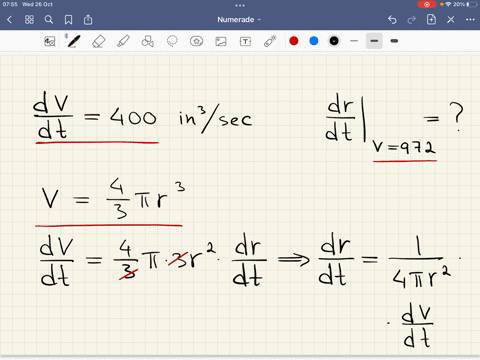 07:55 Wed 26 Oct
20%
Numerade
dV/dt = 400 in³/sec
dr/dt | V=972 = ?
V = 4/3 π r³
dV/dt = 4/3 π · 3r² · dr/dt ⟹ dr/dt = 1/4πr² ·
· dV/dt